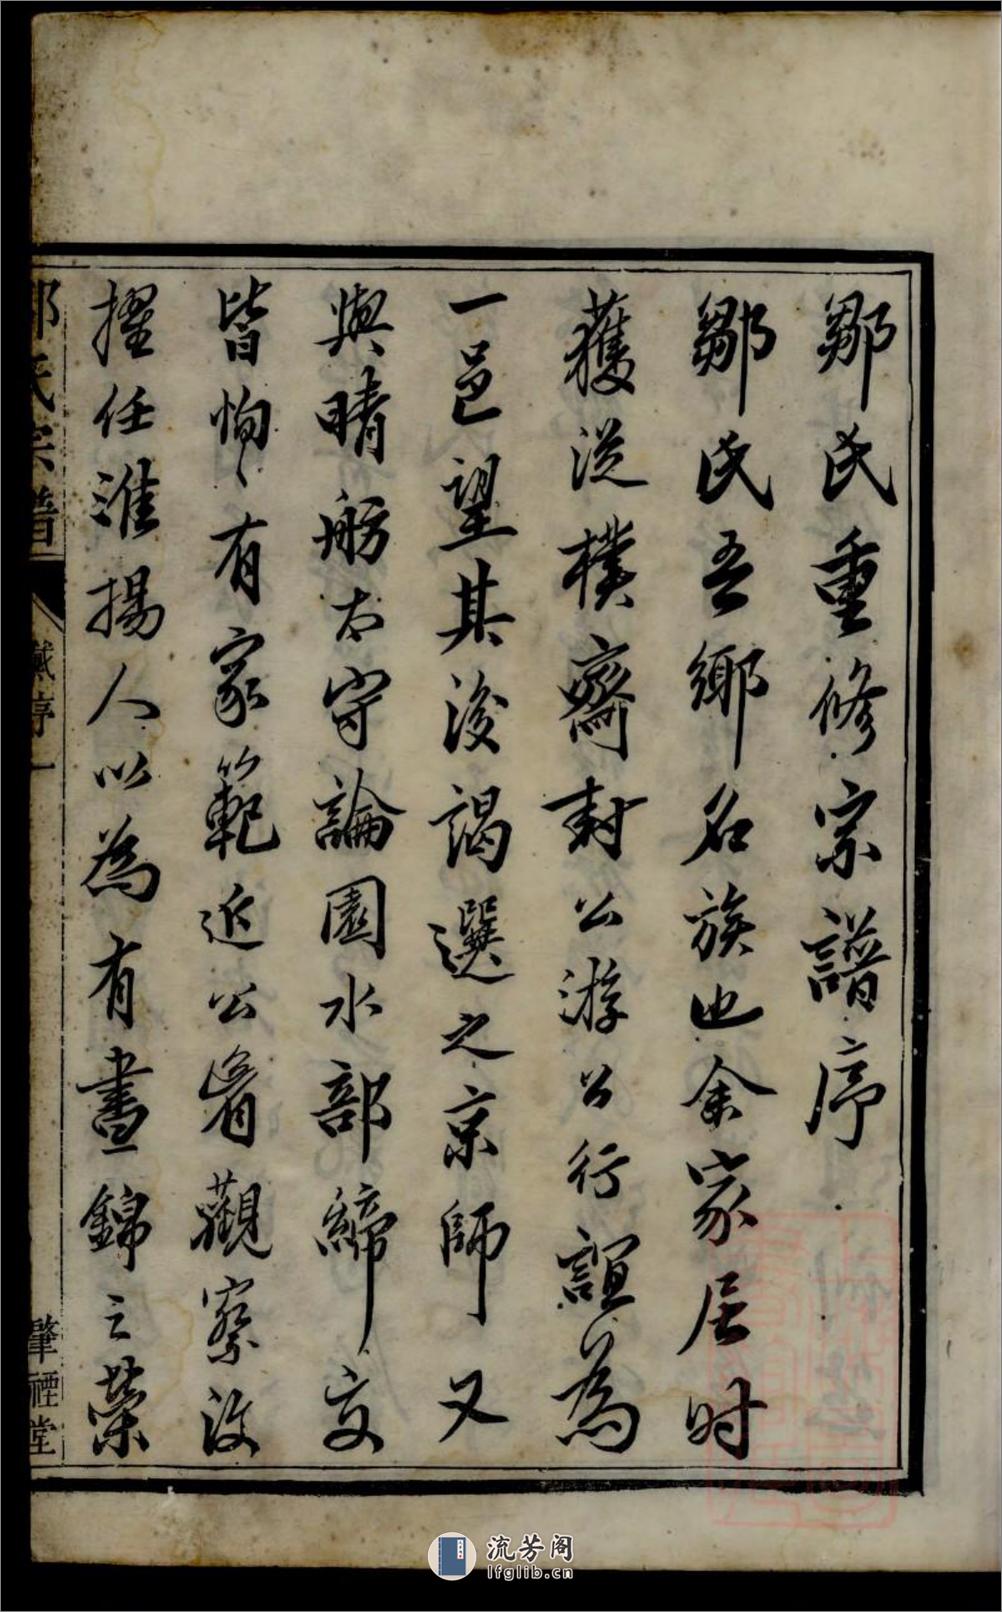 鄒氏重修宗譜序
鄒氏吾鄉名族也余家居时
獲從樸齋封公游公行誼為
一邑望其後謁選之京師又
與晴舫太守論園水部締交
皆恂〻有家範近公眉觀察改
擢任淮揚人以為有晝錦之榮
鄒氏宗譜
序一
肇禋堂
流芳阁
lfglib.cn